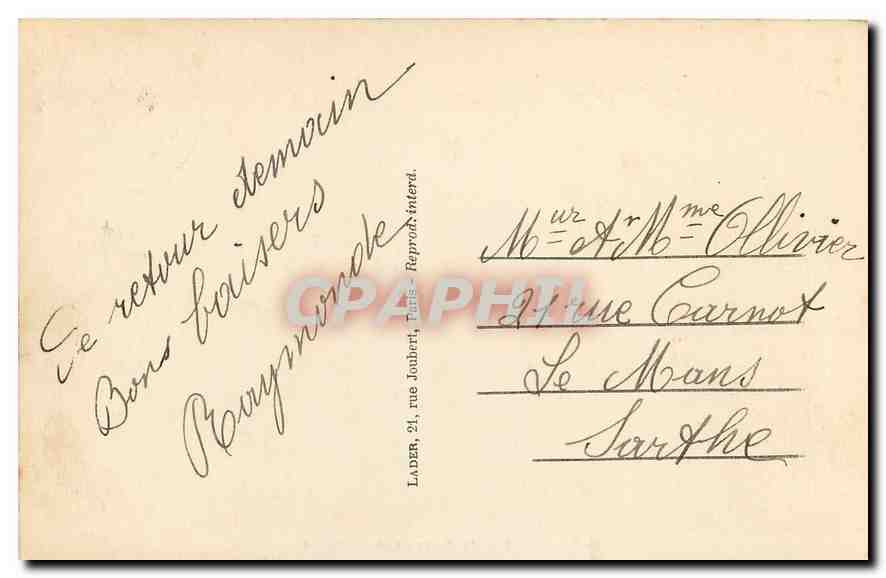 De retour demain
Bons baisers
Raymonde
LADER, 21, rue Joubert, Paris - Reprod. interd.
Mur Ar Mme Ollivier
21 rue Carnot
Le Mans
Sarthe
CPAPHIL